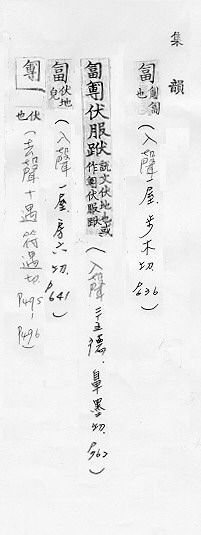 集韻
匐 匍匐也(入聲一屋.步木切.P636)
匐 伏服 說文伏地也或作 伏服(入聲二十五德.鼻墨切.P762)
匐 伏地皃(入聲一屋.房六切.P641)
伏也(去聲十遇.符遇切.P495-P496)